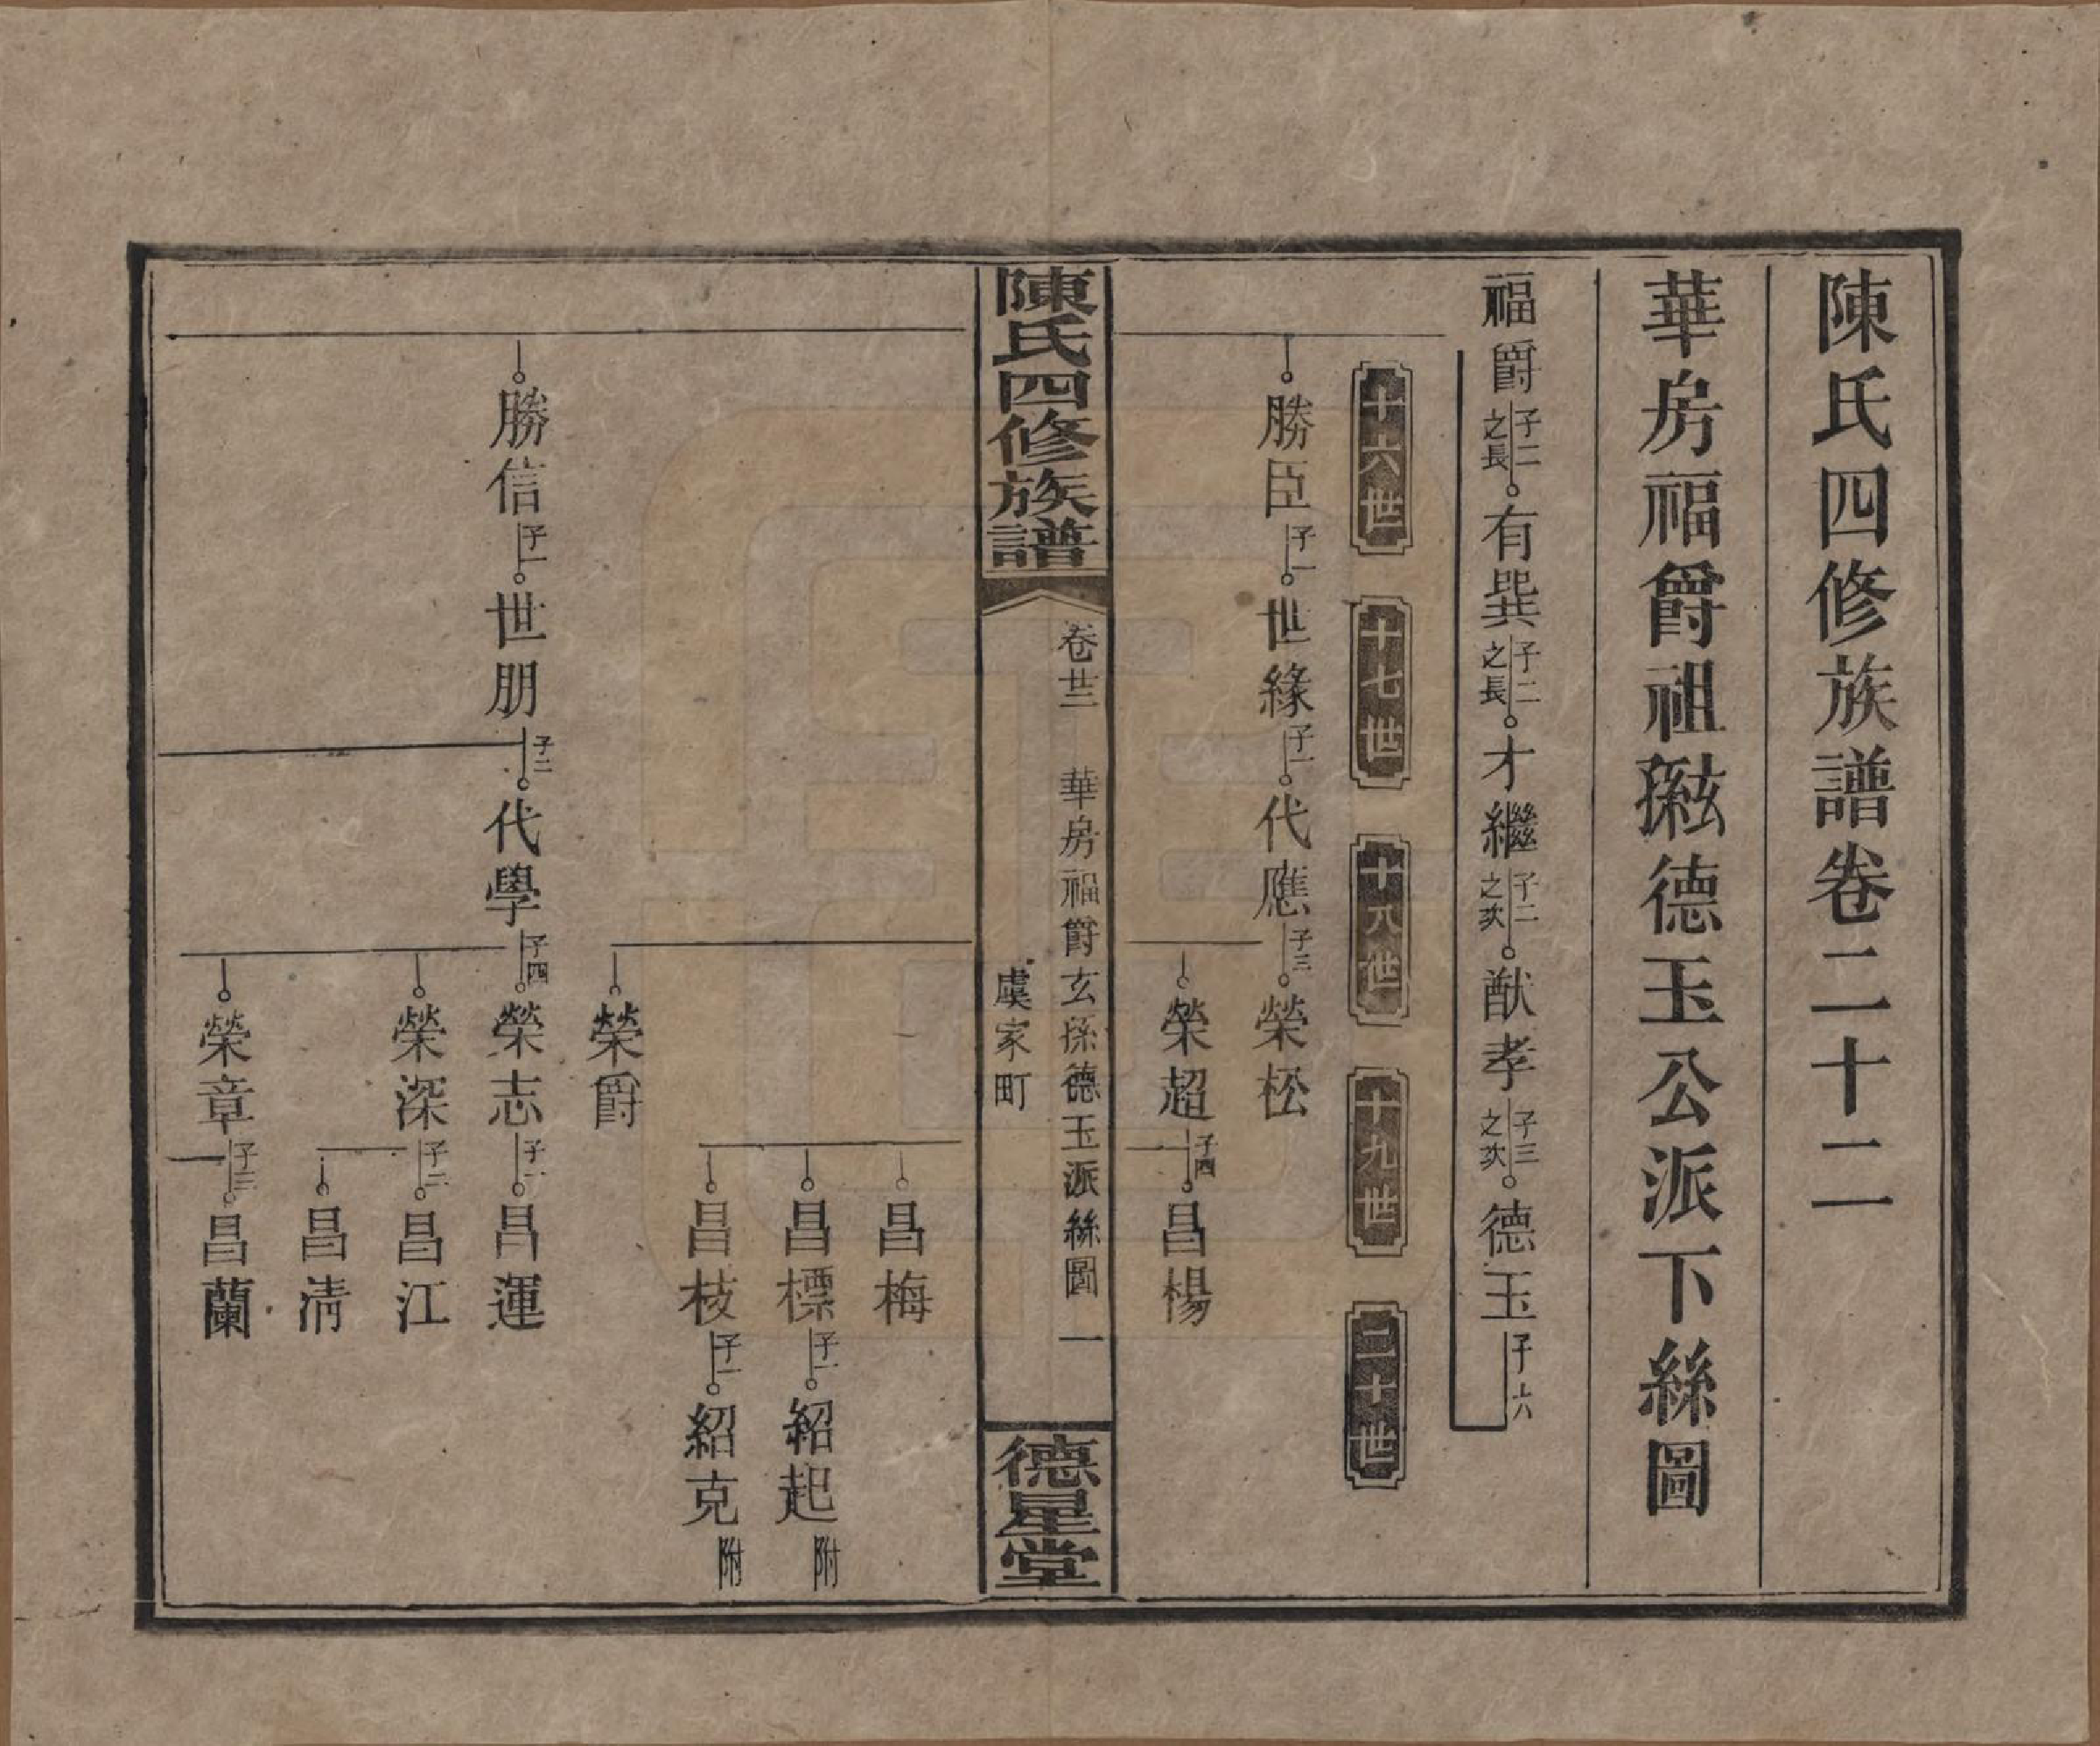 陳氏四修族譜卷二十二
華房福爵祖孫玄德玉公派下絲圖
福爵子二之長有巽子二之長才繼子二之次猷孝子三之次德玉子六
十六世 十七世 十八世 十九世 二十世
勝臣子一世緣子一代應子三榮松
榮超子四昌楊
陳氏四修族譜
卷廿二 華房福爵玄孫德玉派絲圖 一
虞家町
德星堂
昌梅
昌標子一紹起附
昌枝子一紹克附
榮爵
勝信子一世朋子二代學子四榮志子一昌運
榮深子二昌江
昌清
榮章子三昌蘭